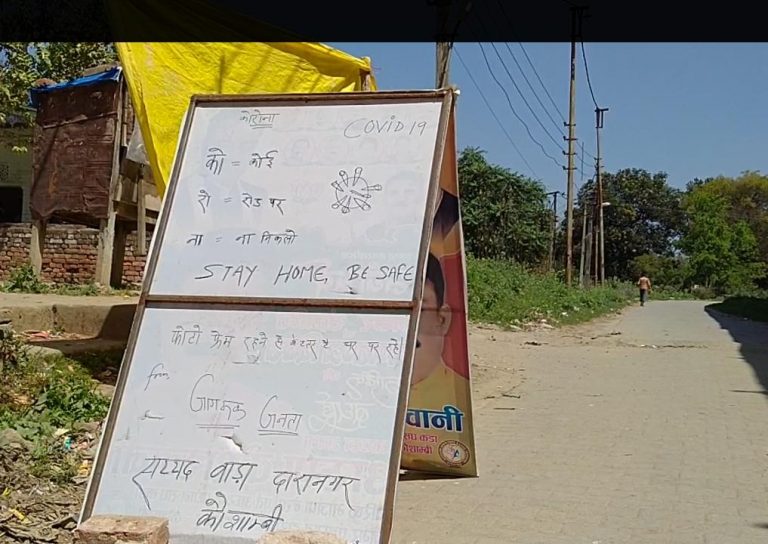 कोरोना
COVID 19
को = कोई
रो = रोड पर
ना = ना निकलो
STAY HOME, BE SAFE
फोटो फ्रेम रहने से बेहतर है घर पर रहें
from
जागरूक जनता
सय्यद वाड़ा दारानगर
कौशाम्बी
वानी
कडा
कौशाम्बी